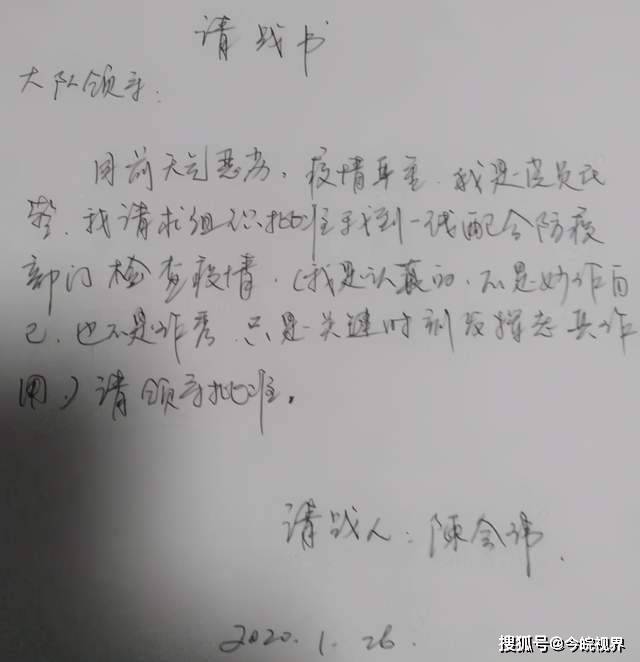 请战书
大队领导:
目前天气恶劣,疫情严重,我是党员民
警,我请求组织批准我到一线配合防疫
部门检查疫情,(我是认真的,不是炒作自
己,也不是作秀,只是关键时刻发挥党员作
用,)请领导批准。
请战人:陈会
2020.1.26.
搜狐号@今皖视界